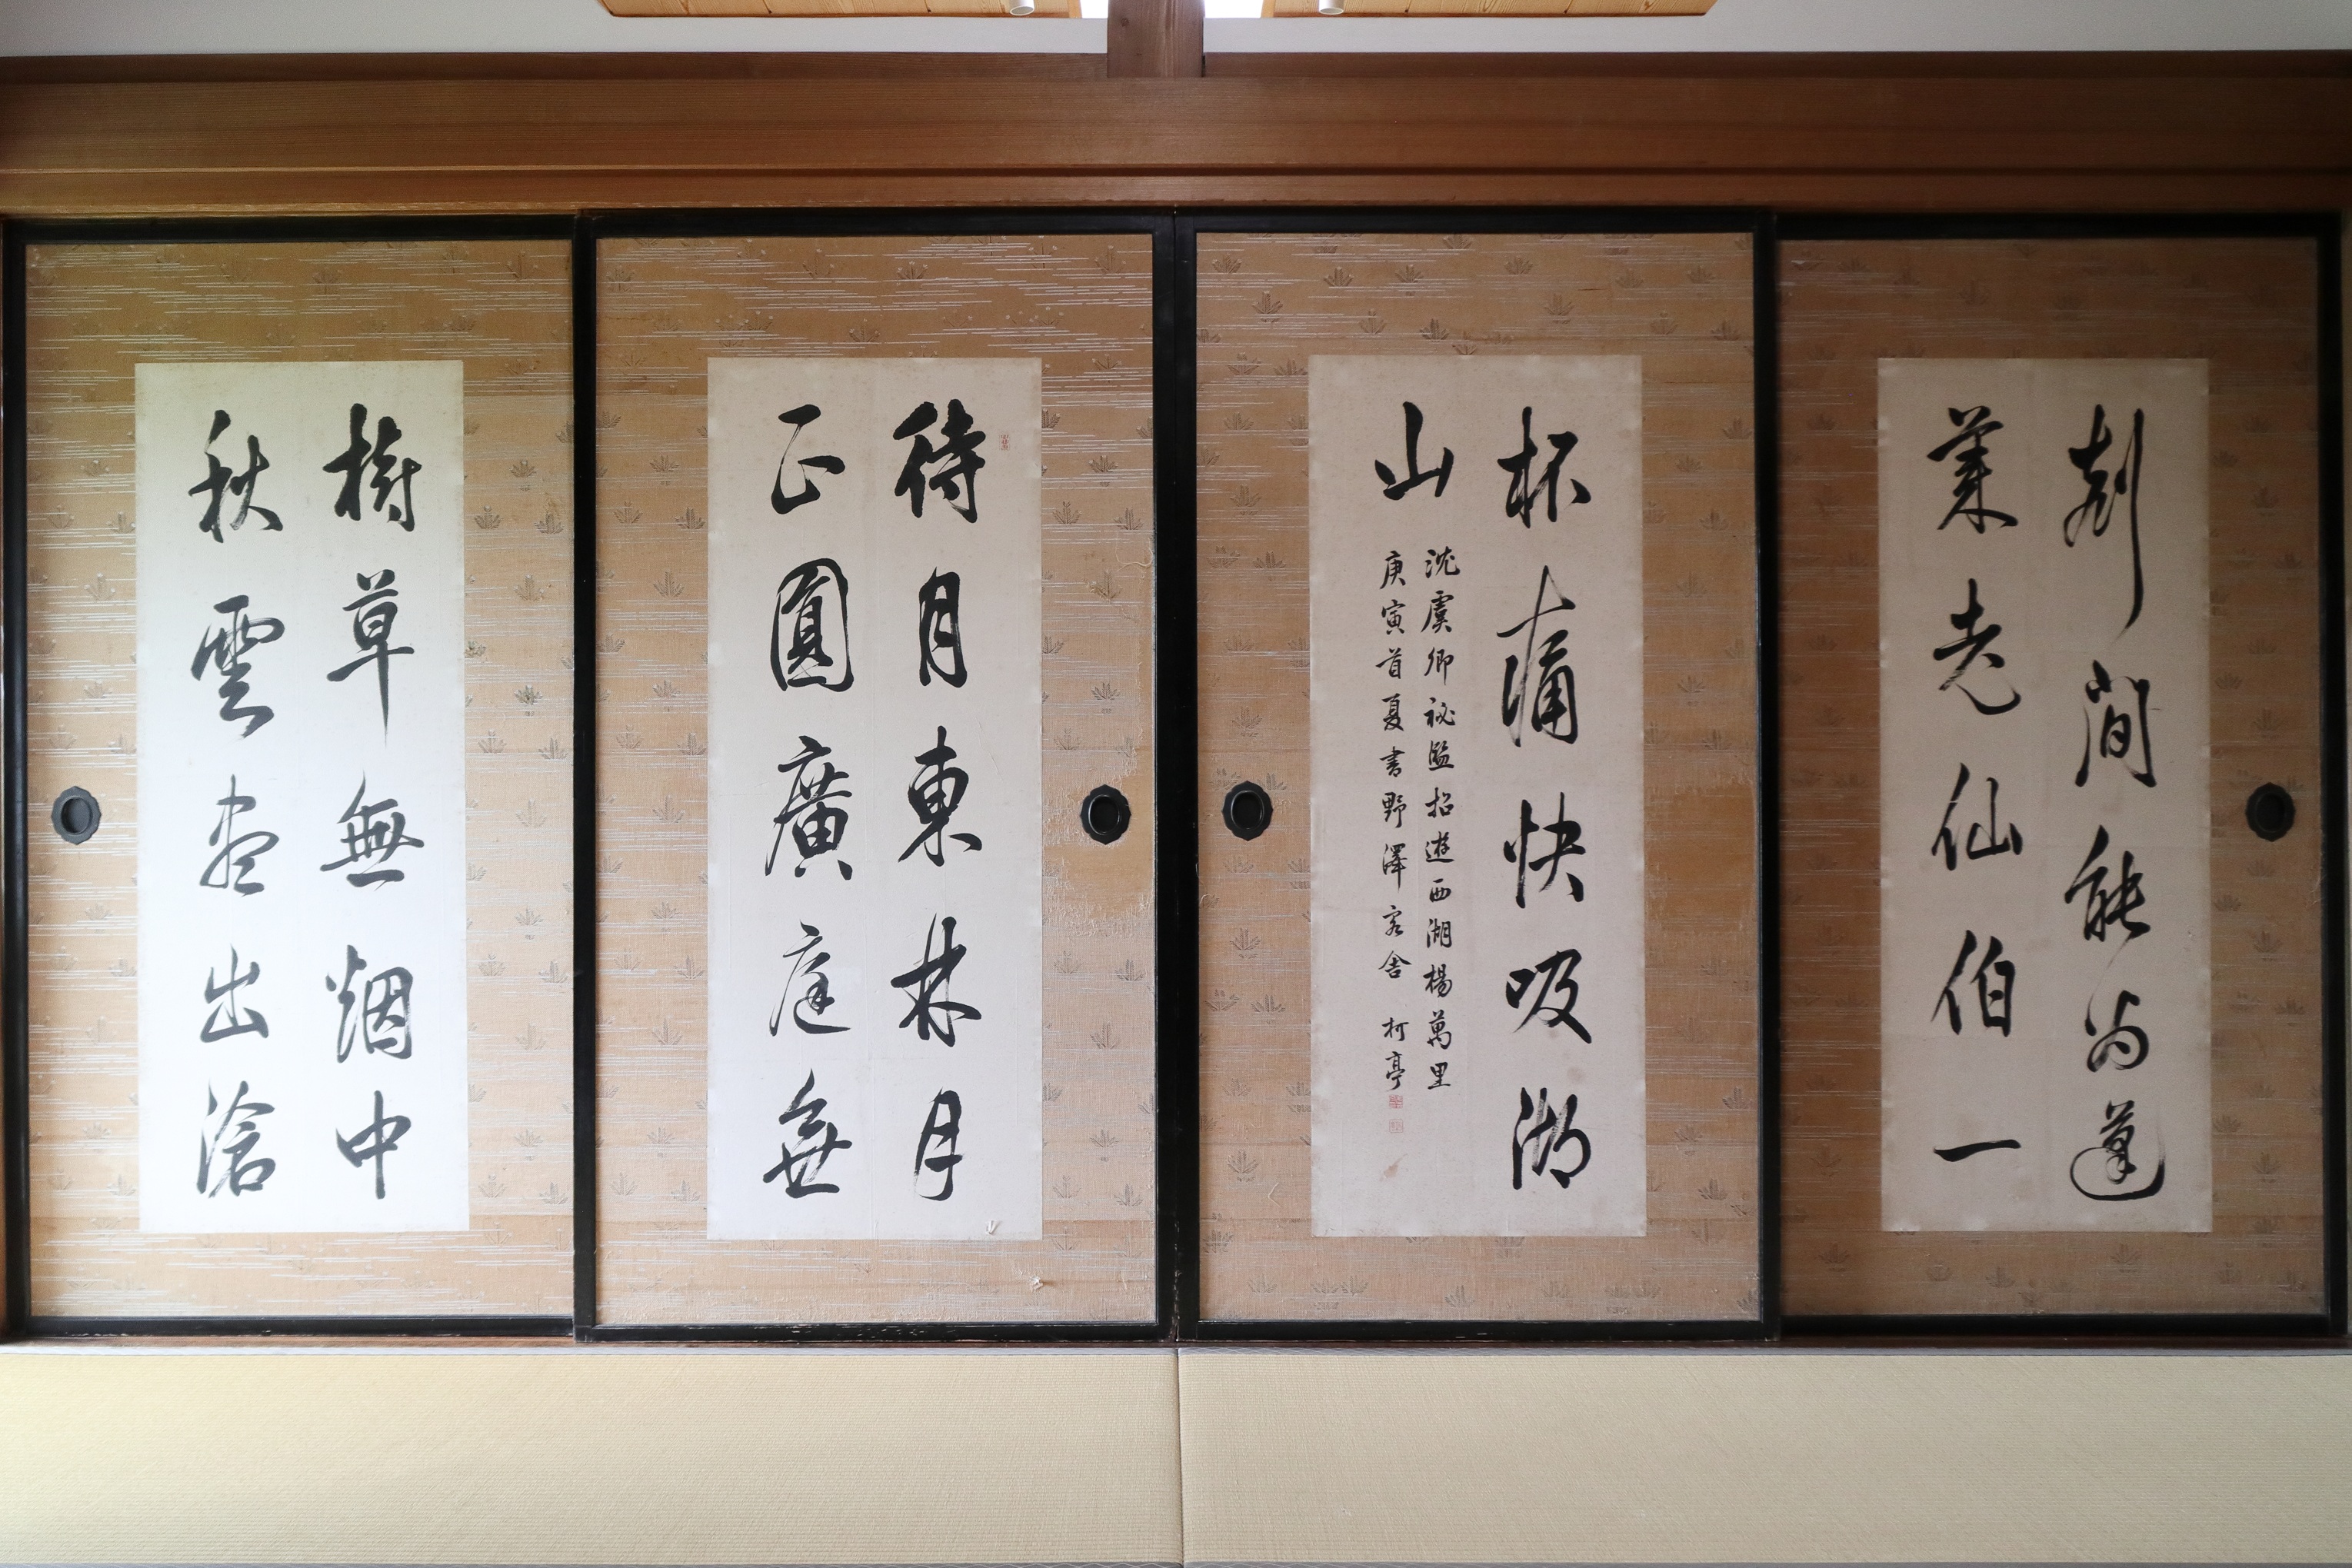 間能為蓬
莱老仙伯一
杯痛快吸湖
山
沈虞卿祕監招遊西湖楊萬里
庚寅首夏書野澤客舎 柯亭
待月東林月
正圓廣庭無
樹草無烟中
秋雲盡出滄